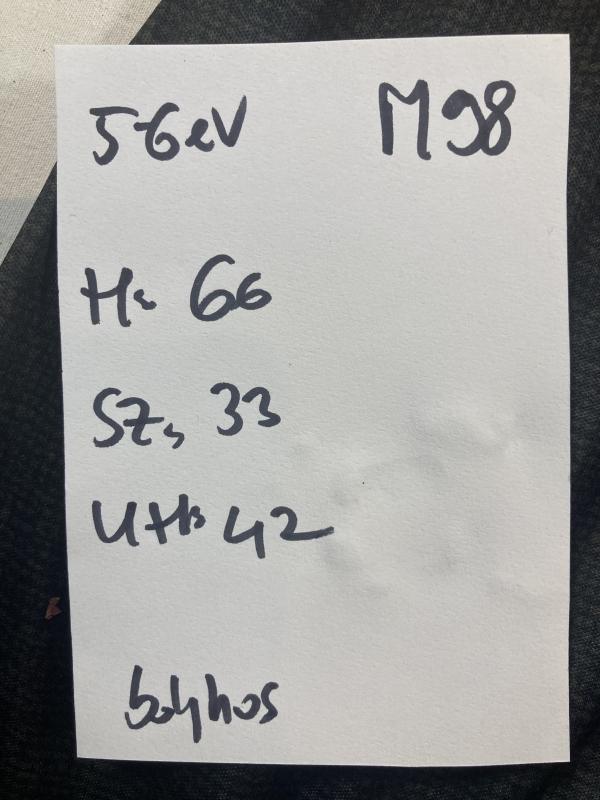 5-6 eV M98
H: 66
SZ: 33
UH: 42
bolyhos